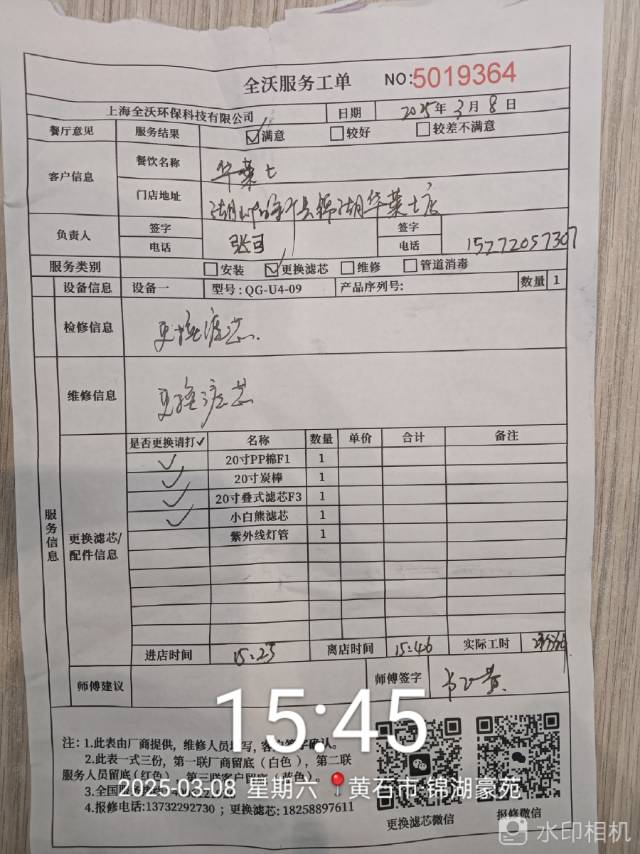 全沃服务工单 NO:5019364
上海全沃环保科技有限公司 日期 2025年3月8日
餐厅意见 服务结果 ☑满意 □较好 □较差不满意
客户信息 餐饮名称 华莱士
门店地址 锦湖华莱士店
负责人 签字 签字
电话 电话 15772057307
服务类别 □安装 ☑更换滤芯 □维修 □管道消毒
设备信息 设备一 型号:QG-U4-09 产品序列号: 数量 1
检修信息 更换滤芯.
维修信息 更换滤芯
服务信息
更换滤芯/配件信息
是否更换请打✓ 名称 数量 单价 合计 备注
✓ 20寸PP棉F1 1
✓ 20寸炭棒 1
✓ 20寸叠式滤芯F3 1
✓ 小白熊滤芯 1
紫外线灯管 1
进店时间 15:23 离店时间 15:46 实际工时
师傅建议 师傅签字
15:45
注:1.此表由厂商提供,维修人员填写,客户签字确认。
2.此表一式三份,第一联厂商留底(白色),第二联
服务人员留底(红色),第三联客户留底(蓝色)。
2025-03-08 星期六 黄石市·锦湖豪苑
3.全国
4.报修电话:13732292730 ; 更换滤芯:18258897611
更换滤芯微信 报修微信
水印相机